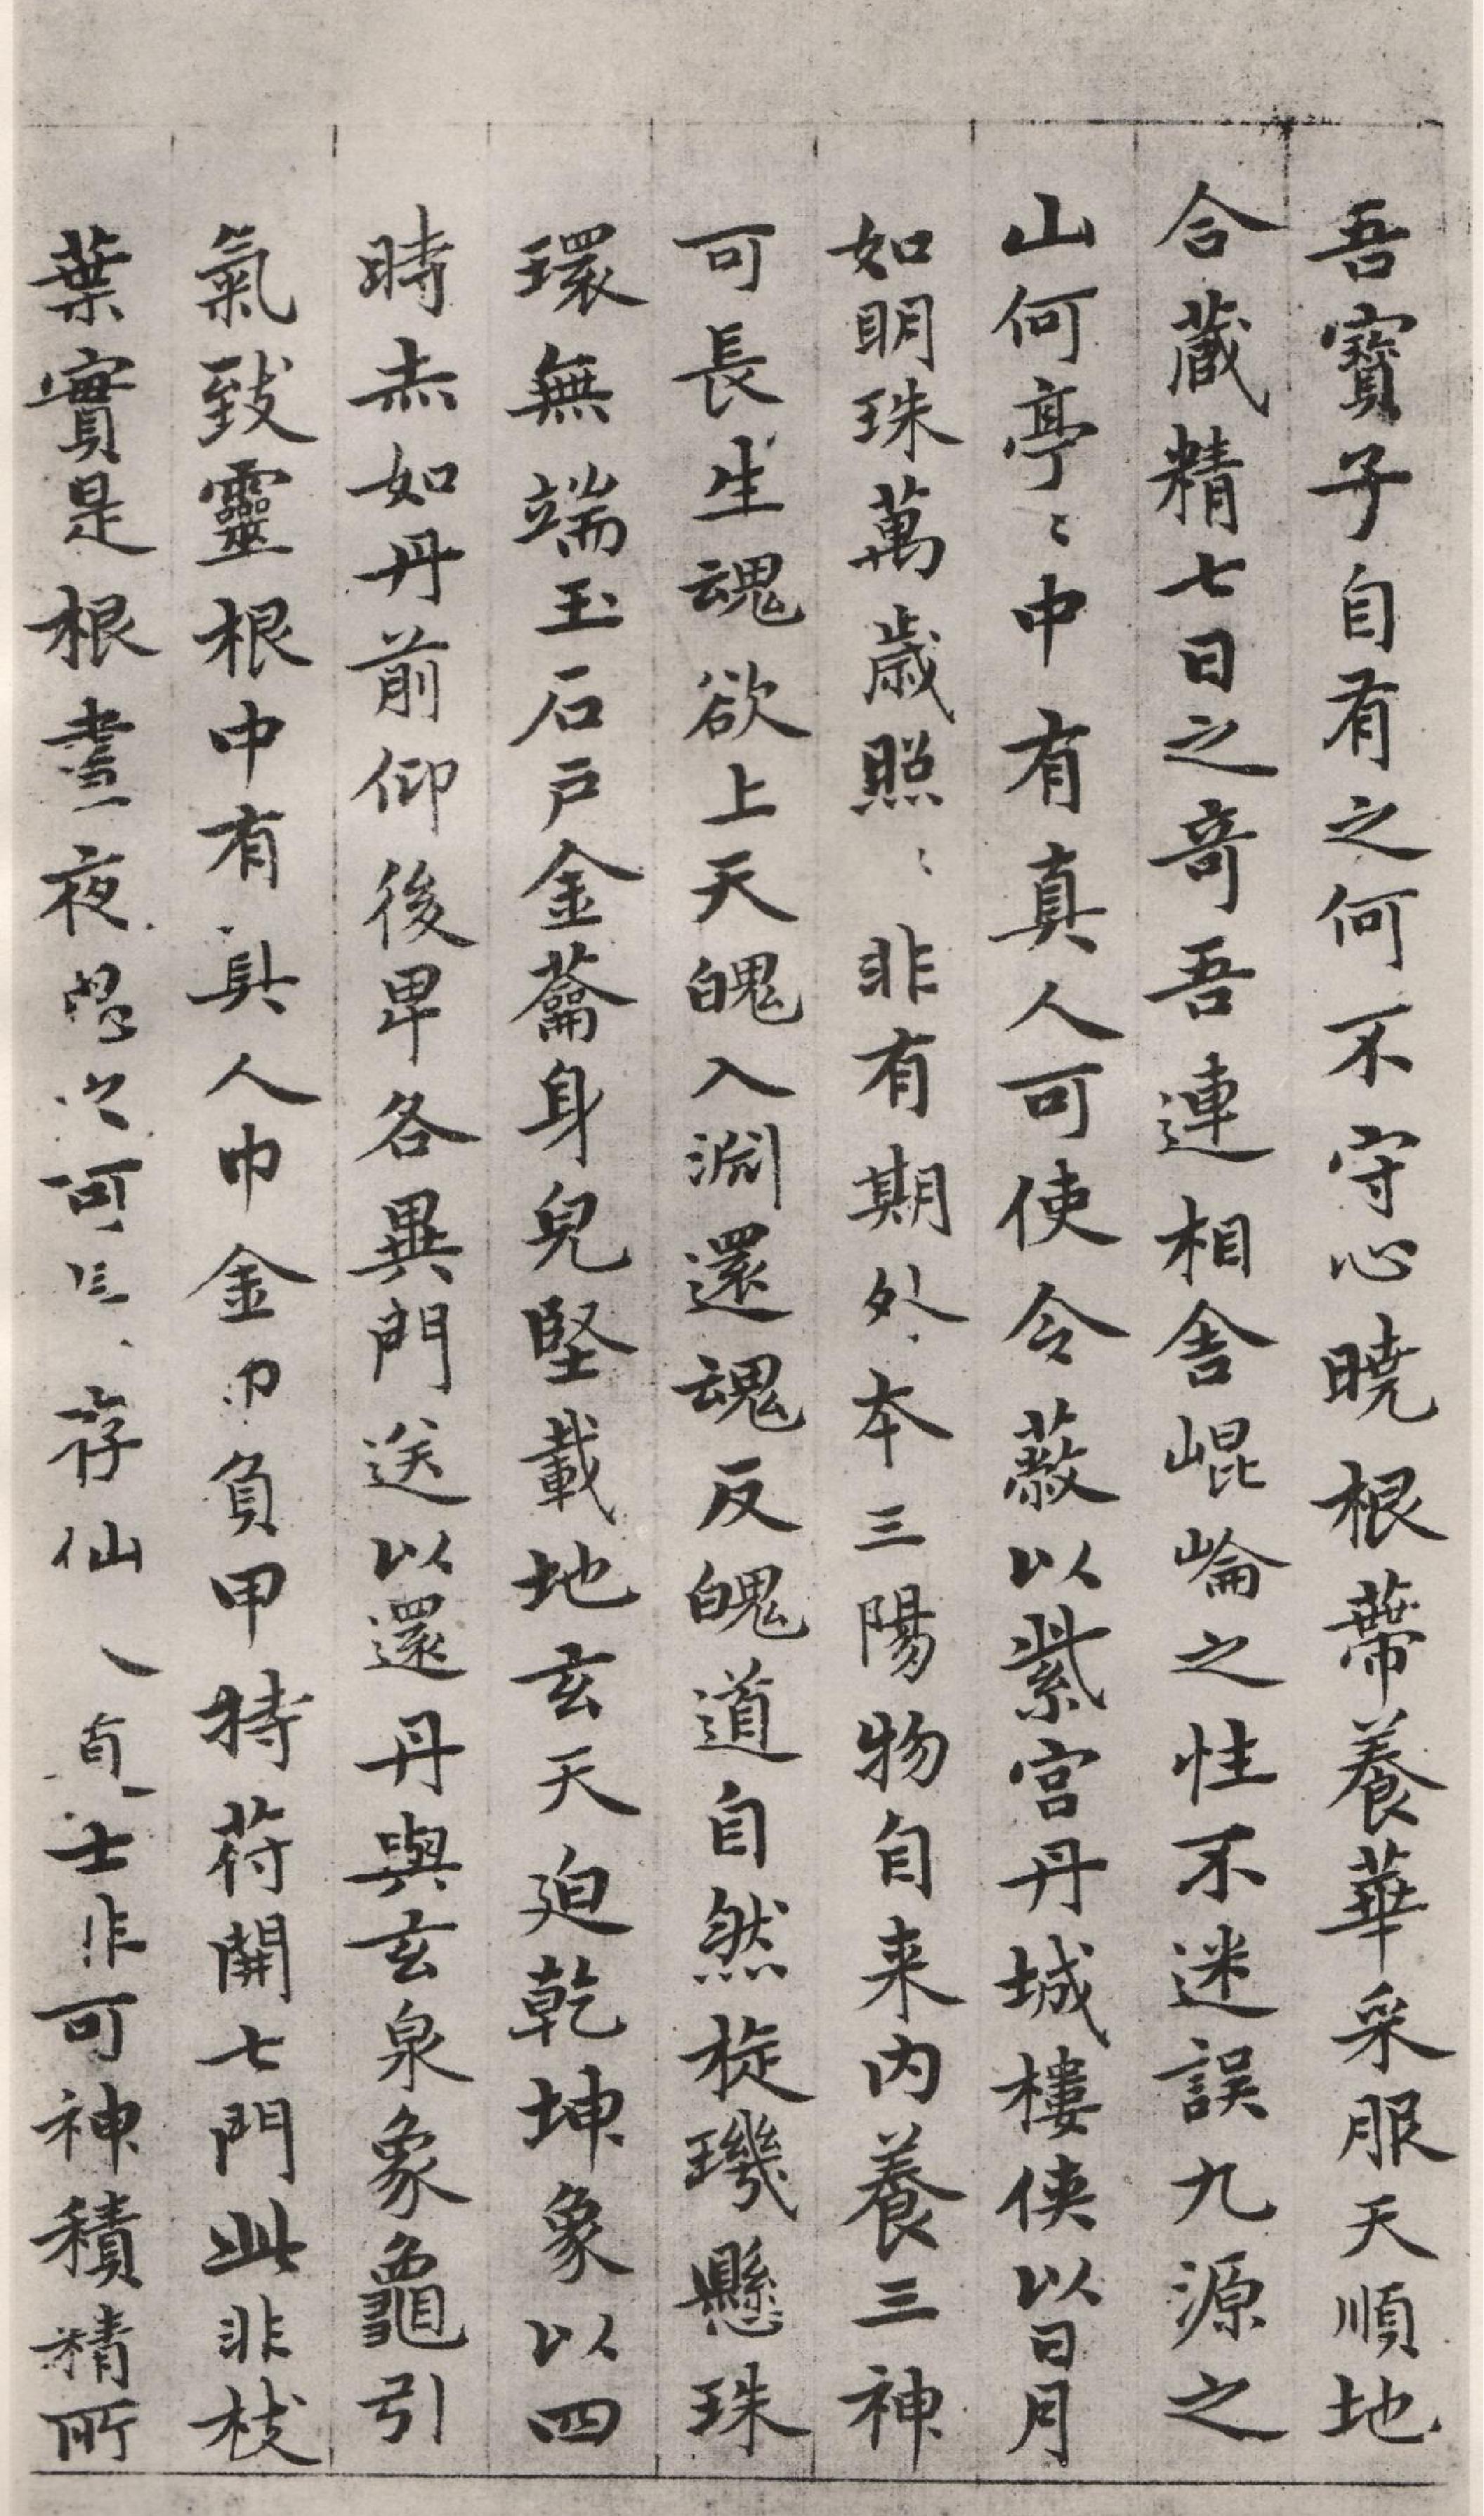 吾寶子自有之何不守心曉根蔕養華采服天順地
合藏精七日之奇吾連相舎崐崘之性不迷誤九源之
山何亭〻中有真人可使令蔽以紫宫丹城樓侠以日月
如明珠萬歳照〻非有期外本三陽物自来内養三神
可長生魂欲上天魄入淵還魂反魄道自然㫌璣懸珠
環無端玉石戸金蘥身皃堅載地玄天迫乾坤象以四
時赤如丹前仰後卑各異門送以還丹與玄泉象龜引
氣致靈根中有真人巾金巾負甲持苻開七門此非枝
葉實是根晝夜思之可長存仙人道士非可神積精所